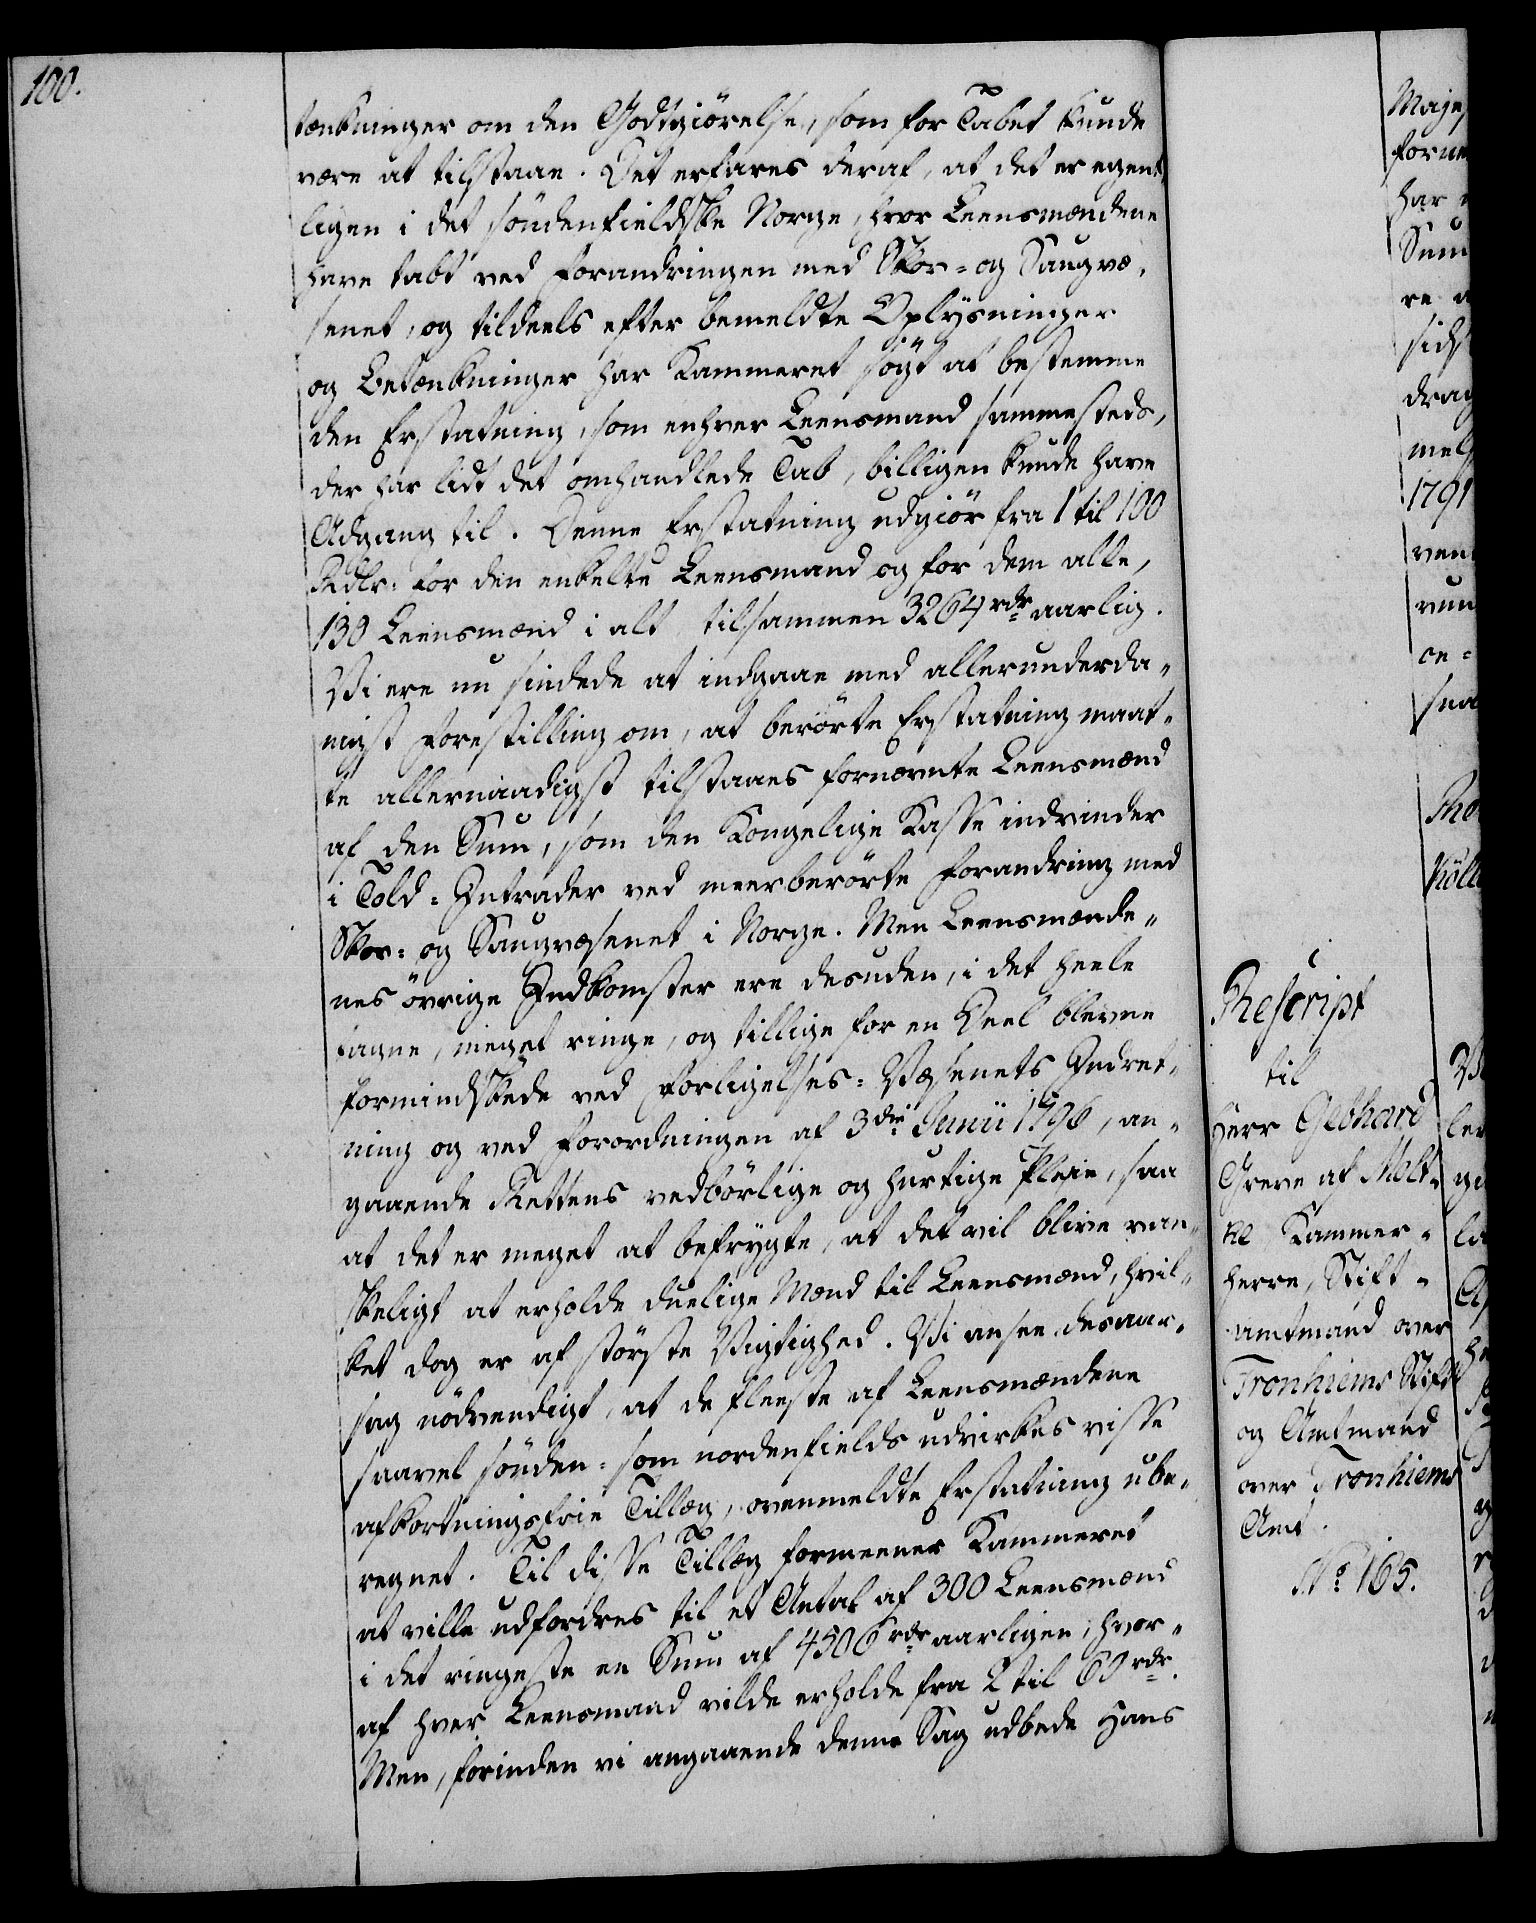 100.
tænkninger om den Godtgiörelse, som for Tabet kunde
være at tilstaae. Det erfares deraf, at det er egent-
ligen i det söndenfieldske Norge, hvor Leensmændene
have tabt ved Forandringen med Skov- og Saugvæ-
senet, og tildeels efter bemeldte Oplysninger
og Betænkninger har Kammeret sögt at bestemme
den Erstatning, som enhver Leensmand sammesteds,
der har lidt det omhandlede Tab, billigen kunde have
Adgang til. Denne Erstatning udgiör fra 1 til 100
Rdlr: for den enkelte Leensmand og for dem alle,
130 Leensmænd i alt tilsammen 3264 rdr aarlig.
Vi ere nu sindede at indgaae med allerunderda-
nigst Forestilling om, at berörte Erstatning maat-
te allernaadigst tilstaaes fornævnte Leensmænd
af den Sum, som den Kongelige Kasse indvinder
i Told-Intrader ved meerberörte Forandring med
Skov- og Saugvæsenet i Norge. Men Leensmænde-
nes övrige Indkomster ere desuden, i det heele
tagne, meget ringe, og tillige for en Deel blevne
formindskede ved Forligelses-Væsenets Indret-
ning og ved Forordningen af 3die Junii 1796, an-
gaaende Rettens vedbörlige og hurtige Pleie, saa
at det er meget at befrygte, at det vil blive van-
skeligt at erholde duelige Mænd til Leensmænd, hvil-
ket dog er af störste Vigtighed. Vi ansee desaar-
sag nödvendigt, at de fleeste af Leensmændene
saavel sönden- som nordenfields udvirkes visse
afkortningsfrie Tillæg, ovenmeldte Erstatning ube-
regnet. Til disse Tillæg formeener Kammeret
at ville udfordres til et Antal af 300 Leensmænd
i det ringeste en Sum af 4506 rdr aarligen, hvor-
af hver Leensmand vilde erholde fra 2 til 60 rdr.
Men, forinden vi angaaende denne Sag udbede Hans
Rescript
til
Herr Gebhard
Greve af Molt-
ke Kammer-
herre, Stift-
amtmand over
Tronhiems Stift
og Amtmand
over Tronhiems
Amt.
No 165.
Maje
har
Sum
re
sidst
drag
1791